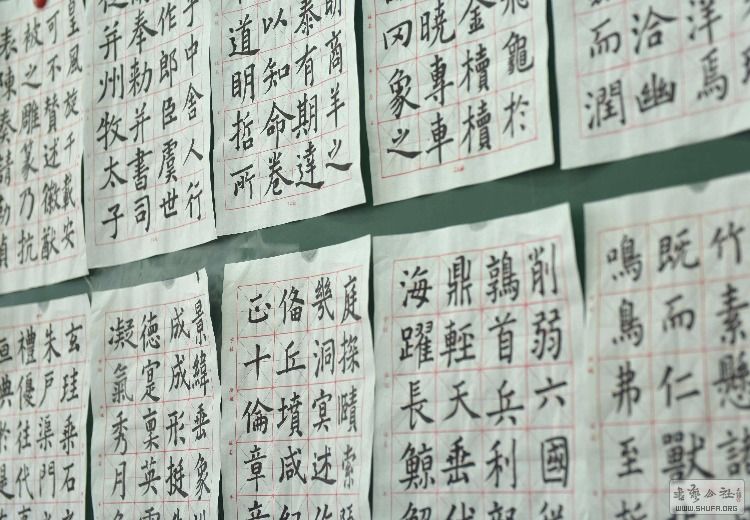 皇風旋千載安
可不贊述徽猷
被之雕篆乃抗
表陳奏請勒貞
子中舍人行
作郎臣虞世
南奉勅并書司
并州牧太子
明商羊之
泰有期達
以知命卷
道明哲所
飛龜於
金櫝櫝
曉專車
罔象之
洋焉
洽幽
而潤
玄珪乘石
朱戶渠門
禮優往代
典於是
景緯垂象
成成形挺
德寔稟英
凝氣秀月
庭探賾索
幾洞冥述
偹丘墳咸
正十倫章
削弱六國
鶉首兵利
鼎輕天垂
海躍長鯨
竹素懸
既而仁獸
鳴鳥弗至
WWW.SHUFA.ORG